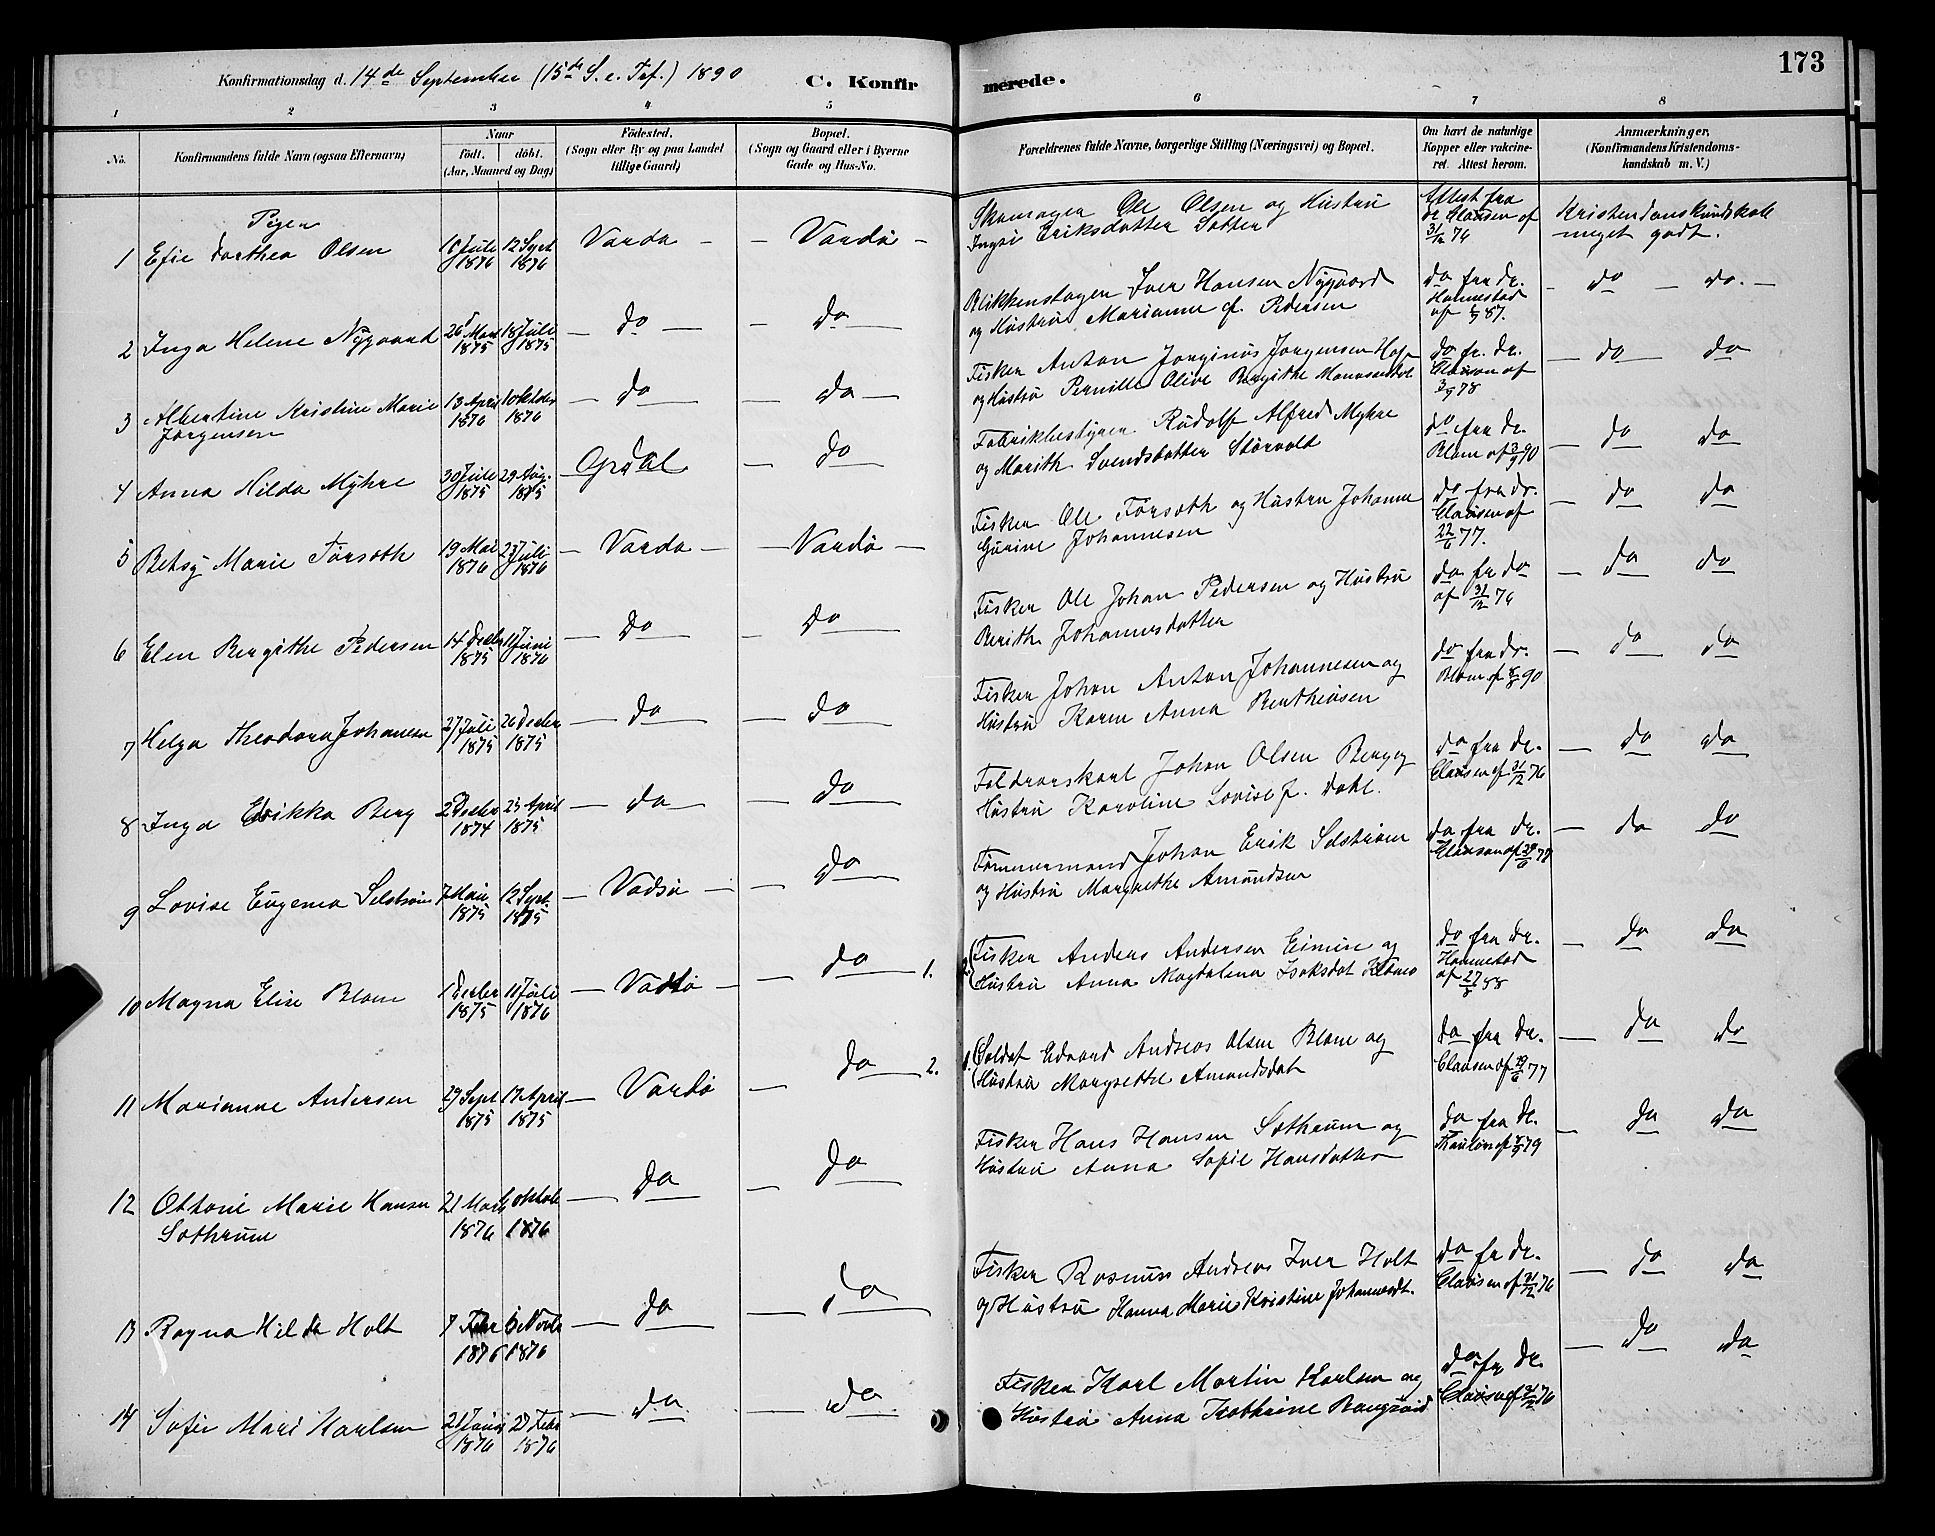 Konfirmationsdag d. 14de September (15de S. e. Tref.) 1890
C. Konfirmerede.
173
1 2 3 4 5 6 7 8
No.
Konfirmandens fulde Navn (ogsaa Efternavn)
Naar
födt. döbt.
(Aar, Maaned og Dag)
Födested.
(Sogn eller By og paa Landet
tillige Gaard)
Bopæl.
(Sogn og Gaard eller i Byerne
Gade og Hus-No.
Forældrenes fulde Navne, borgerlige Stilling (Næringsvei) og Bopæl.
Om havt de naturlige
Kopper eller vakcine-
ret. Attest herom.
Anmærkninger.
(Konfirmandens Kristendoms-
kundskab m. V.)
Piger
1 Efie Dorthea Olsen
Juli 1876
12 Sept 1876
Vardø
Vardø
Skomager Ole Olsen og Hustru
Eriksdatter
Attest fra
Dr Clausen af
31/12 76
Kristendomskundskab
meget godt.
2 Inga Helene Nygaard
26 Mars 1875
18 Juli 1875
do
do
Blikkenslager Iver Hansen Nygaard
og Hustru Marianne f. Pedersen
do fra dr.
Hannestad
do do.
3 Albertine Kristine Marie
Jørgensen
13 April 1876
1 Oktober 1876
do
do
Fisker Anton Jørginus Jørgensen
og Hustru Pernille Olive Bergithe
do fr. dr.
Clausen af
3/9 78
do do
4 Anna Hilda Myhre
30 Juli 1875
29 Aug. 1875
do
Fabrikbestyrer Rudolf Alfred Myhre
og Marith Svendsdatter Storvold
do fra dr.
Blom af 3/9 90
do do
5 Betsy Marie Torsoth
19 Mai 1876
23 Juli 1876
Vardø
Vardø
Fisker Ole Torsoth og Hustru Johanne
Gurine Johannesen
do fra dr.
Clausen af
22/6 77.
do do
6 Elen Bergithe Pedersen
14 Decbr 1875
11 Juni 1876
do
do
Fisker Ole Johan Pedersen og Hustru
Berith Johannesdatter
do fr do
af 31/12 76
do do
7 Helga Theodora Johansen
27 Juli 1875
26 Decbr 1875
do
do
Fisker Johan Anton Johannesen og
Hustru Karen Anna Bentheusen
do fra dr.
Blom af 90
do do
8 Inga Erikka Berg
Decbr 1874
25 April 1875
do
do
Johan Olsen Berg og
Hustru Karoline Lovise f. Dahl.
do fra dr.
Clausen af 31/12 76
do do
9 Lovise Eugenea Selstrøm
7 Mai 1875
12 Sept. 1875
Vadsø
do
Tømmermand Johan Erik Selstrøm
og Hustru Margrethe Amundsen
do fra dr.
Clausen af 77
do do
10 Magna Elise Blom
1 Decbr 1875
11 Juli 1876
Vadsø
do 1.
2. Fisker Anders Andersen og
Hustru Anna Magdalena Isaksdat
do fra dr.
Hannestad
af 27/8 88
do do
11 Marianne Andersen
29 Sept 1875
17 April 1875
Vardø
do 2.
1. Soldat Edvard Andreas Olsen Blom og
Hustru Margrethe Amundsdat
do fra dr.
Clausen af 29/6 77
do do
12 Ottone Marie Hansen
Sothrum
21 Mars 1876
Oktob 1876
do
do
Fisker Hans Hansen Sothrum og
Hustru Anna Sofie Hansdatter
do fra dr.
79
do do
13 Ragna Hilda Holt
7 Febr 1876
5 Novbr 1876
do
do
Fisker Rasmus Andreas Iver Holt
og Hustru Hanna Marie Kristine Johannesdt.
do fr dr.
Clausen af 31/12 76
do do
14 Sofie Marie Karlsen
21 Januar 1876
27 Febr 1876
do
do
Fisker Karl Martin Karlsen og
Hustru Anna Kathrine
do fr dr.
Clausen af 31/12 76
do do